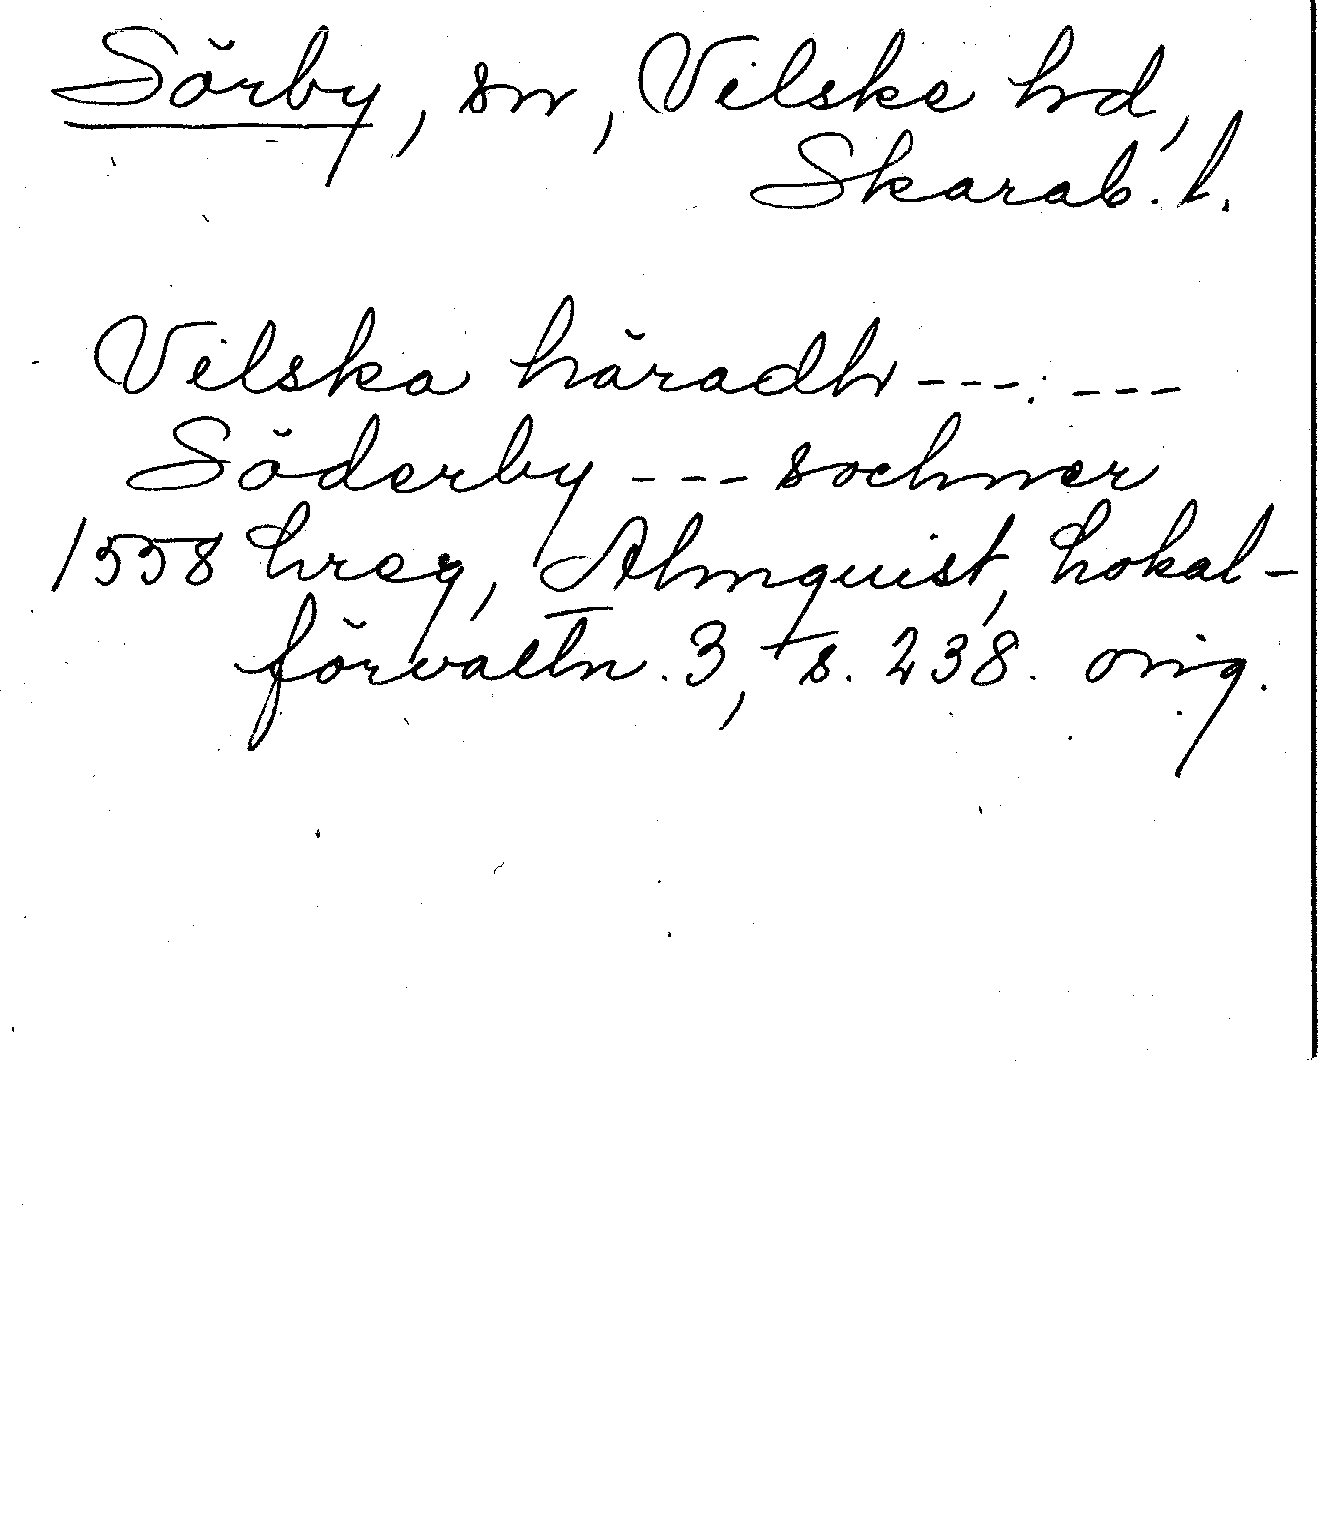 Sörby, sn, Vilske hd,
Skarab. l.
Vilska häradh ---. ---
Söderby --- sochner
1558 hreg, Almquist, Lokal-
förvaltn. 3, s. 238. orig.